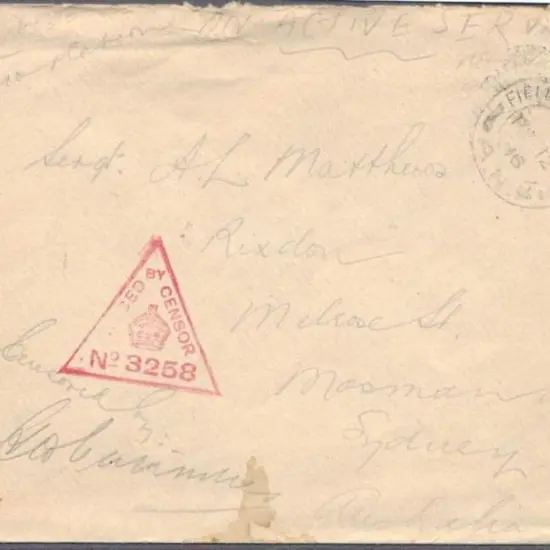 ON ACTIVE SERV
FIEL
Sergt. A L Matthews
"Rixdon"
Melrose St.
Mosman
Sydney
Australia
SED BY CENSOR
No 3258
Censored by